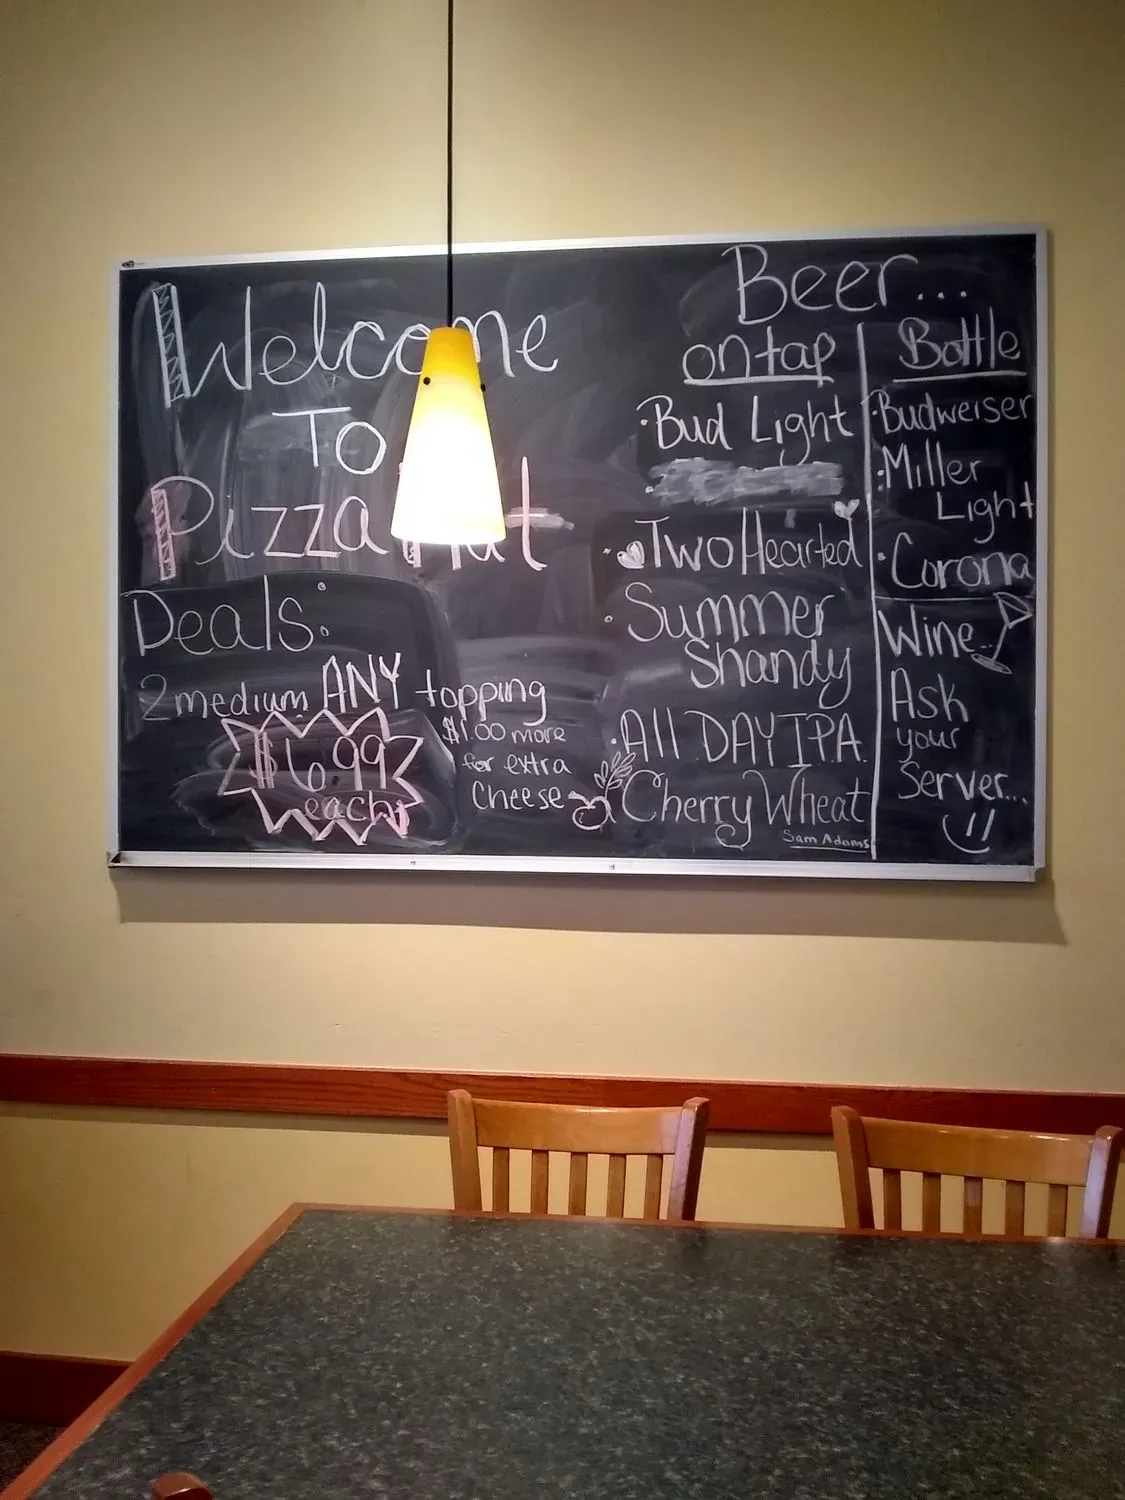 Welcome
To
Pizza Hut
Deals:
2 medium ANY topping
$6.99
each
$1.00 more
for extra
cheese
Beer...
on tap
Bud Light
Two Hearted
Summer
Shandy
All DAY IPA
Cherry Wheat
Sam Adams
Bottle
Budweiser
Miller
Light
Corona
Wine..
Ask
your
Server...